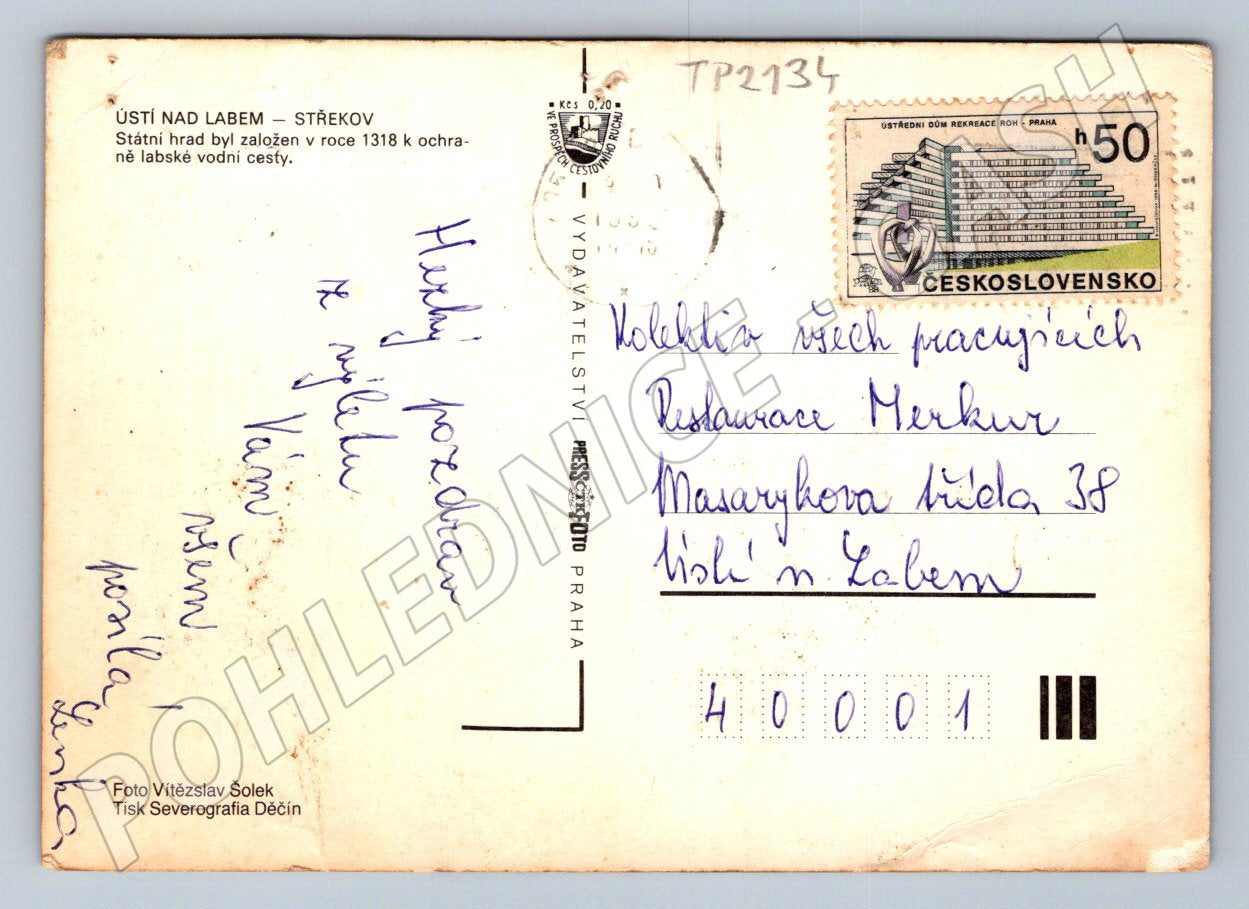 TP2134
ÚSTÍ NAD LABEM – STŘEKOV
Státní hrad byl založen v roce 1318 k ochra-
ně labské vodní cesty.
Kčs 0,20
VE PROSPĚCH CESTOVNÍHO RUCHU
ÚSTŘEDNÍ DŮM REKREACE ROH - PRAHA
h50
ČESKOSLOVENSKO
Hezký pozdrav
z výletu
Vám
všem
posílá
Lenka
VYDAVATELSTVÍ PRESSFOTO PRAHA
ČTK
Kolektiv všech pracujících
Restaurace Merkur
Masarykova třída 38
Ústí n. Labem
40001
Foto Vítězslav Šolek
Tisk Severografia Děčín
POHLEDNICE - CASH